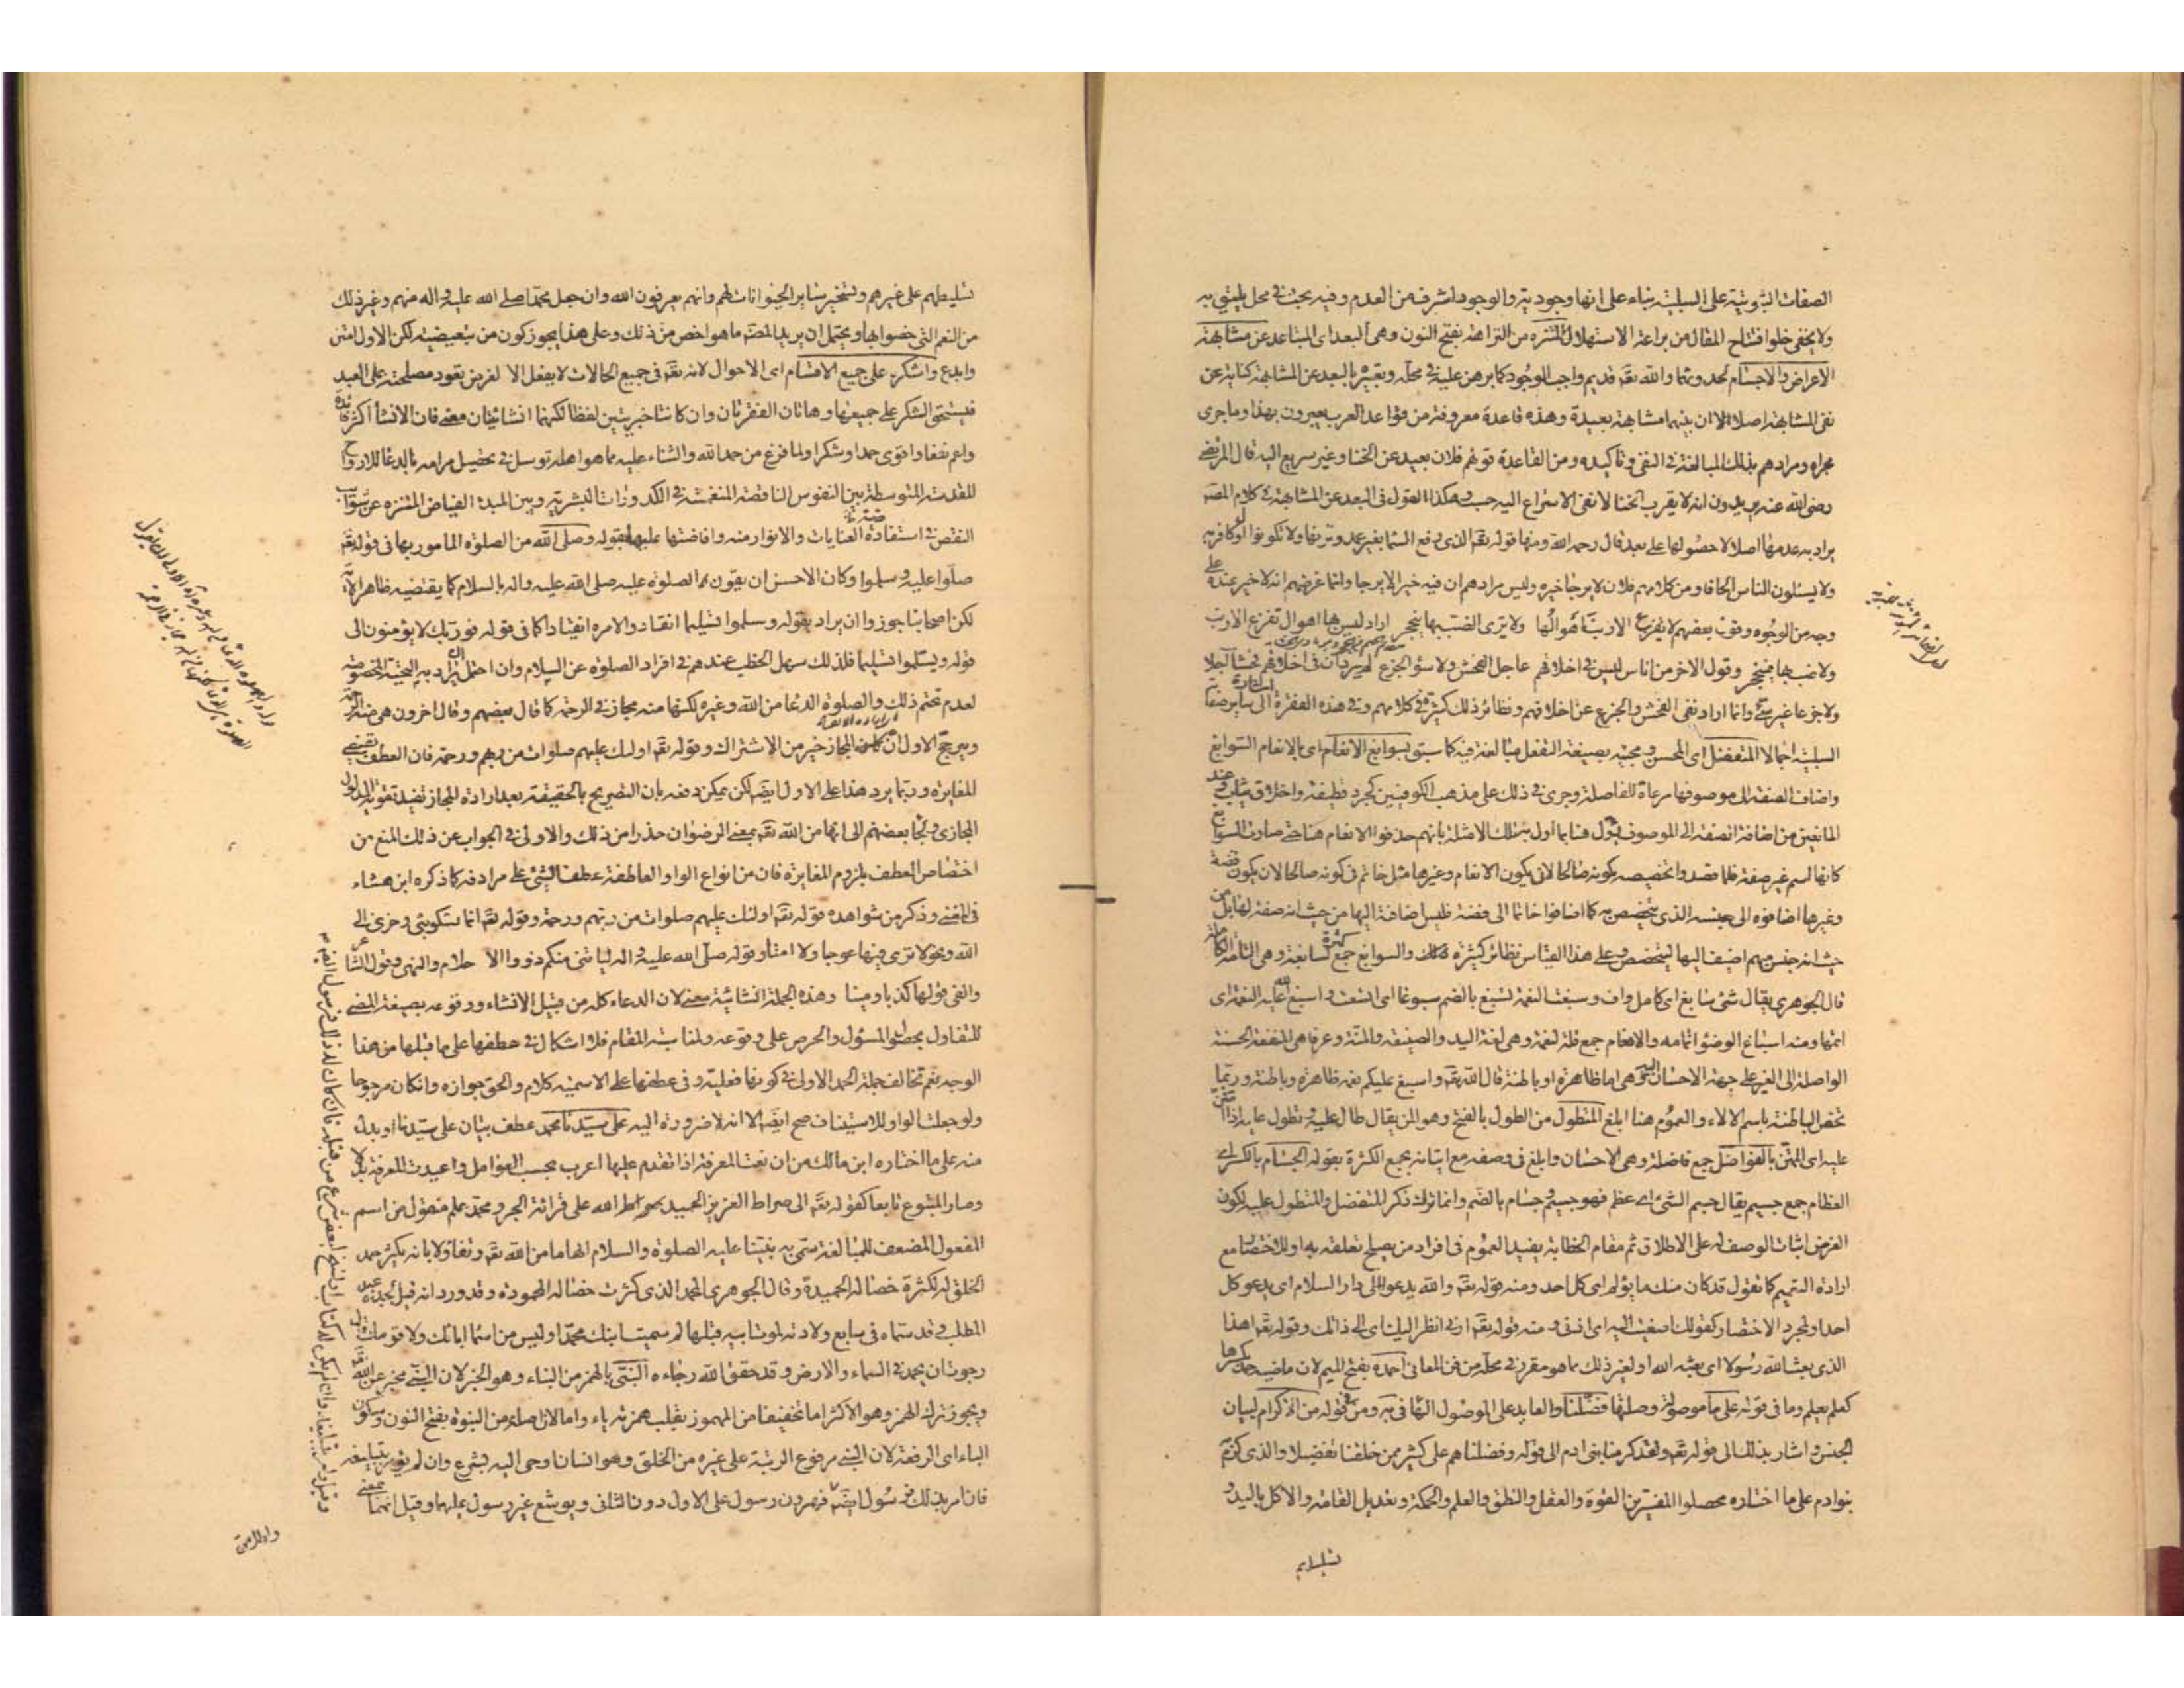 الصفات الثبوتية على السلبية بناء على انها وجودية والوجود اشرف من العدم وفيه بحث في محل يليق به
ولا يخفى خلو افتتاح المقال من براعة الاستهلال المتنزه من النزاهة بفتح النون وهى البعد اى المتباعد عن مشابهة
الاعراض والاجسام لحدوثها والله تقه قديم واجب الوجود كما برهن عليه في محله وتعبيره بالبعد عن المشابهة كناية عن
نفى المشابهة اصلا لا ان بينهما مشابهة بعيدة وهذه قاعدة معروفة من قواعد العرب يعبرون بهذا وما جرى
مجراه ومرادهم بذلك المبالغة في النفى وتاكيده ومن القاعدة قولهم فلان بعيد عن الخنا وغير سريع اليه قال المرتضى
رضى الله عنه يريدون انه لا يقرب الخنا لا نفى الاسراع اليه حسب وهكذا القول في البعد عن المشابهة في كلام المصه
يراد به عدمها اصلا لا حصولها على بعد قال رحمه الله ومنها قوله تقه الذى رفع السما بغير عمد ترونها ولا تكونوا اول كافر به
ولا يسئلون الناس الحافا ومن كلامهم فلان لا يرجا خيره وليس مرادهم ان فيه خيرا لا يرجا وانما غرضهم انه لا خير عنده على
وجه من الوجوه وقول بعضهم لا يفزع الارنب اهوالها ولا يرى الضب بها ينجحر اراد ليس بها اهوال تفزع الارنب
ولا ضب بها فينجحر وقول الاخر من اناس ليس في اخلاقهم عاجل الفحش ولا سؤ الجزع لم يرد ان في اخلاقهم فحشا اجلا
ولا جزعا غير سيئ وانما اراد نفى الفحش والجزع عن اخلاقهم ونظائر ذلك كثيرة في كلامهم وفي هذه الفقرة اشارة الى ساير صفا
السلبية اجمالا المتفضل اى المحسن ومجيئه بصيغة التفعل مبالغة فيه كما سبق بسوابغ الانعام اى بالانعام السوابغ
واضاف الصفة الى موصوفها مرعاة للفاصلة وجرى في ذلك على مذهب الكوفيين كجرد قطيفة واخلاق ثياب وعند
المانعين من اضافة الصفة الى الموصوف يؤل هنا بما اول به تلك الامثلة بانهم حذفوا الانعام هنا حتى صارت السوابغ
كانها اسم غير صفة فلما قصدوا تخصيصه بكونه صالحا لان يكون الانعام وغيرها مثل خاتم في كونه صالحا لان يكون فضة
وغيرها اضافوه الى جنسه الذى يتخصص به كما اضافوا خاتما الى فضة فليس اضافته اليها من حيث انه صفة لها بل من
حيث انه جنس مبهم اضيف اليها ليتخصص وعلى هذا القياس نظائر كثيرة لذلك والسوابغ جمع سابغة وهى التامة الكاملة
قال الجوهرى يقال شئ سابغ اى كامل واف وسبغت النعمة تسبغ بالضم سبوغا اى اتسعت واسبغ الله عليه النعمة اى
اتمها ومنه اسباغ الوضؤ اتمامه والانعام جمع قلة لنعمة وهى لغة اليد والصنيعة والمنة وعرفا هى المنفعة الحسنة
الواصلة الى الغير على جهة الاحسان اليه وهى اما ظاهرة او باطنة قال الله تقه واسبغ عليكم نعمه ظاهرة وباطنة وربما
تخص الباطنة باسم الالاء والعموم هنا ابلغ المتطول من الطول بالفتح وهو المن يقال طال عليه وتطول عليه اذا امتن
عليه اى الممتن بالفواضل جمع فاضلة وهى الاحسان وابلغ في وصفه مع اتيانه بجمع الكثرة بقوله الجسام بالكسر اى
العظام جمع جسيم يقال جسم الشئ اى عظم فهو جسيم وجسام بالضم وانما ترك ذكر المتفضل والمتطول عليه لكون
الغرض اثبات الوصف له على الاطلاق ثم مقام الخطابة يفيد العموم في افراد من يصلح تعلقه به او للاختصار مع
ارادة التعميم كما تقول قد كان منك ما يؤلم اى كل احد ومنه قوله تقه والله يدعوا الى دار السلام اى يدعو كل
احد او لمجرد الاختصار كقولك اصغيت اليه اى اذنى ومنه قوله تقه ارنى انظر اليك اى الى ذاتك وقوله تقه اهذا
الذى بعث الله رسولا اى بعثه الله او لغير ذلك مما هو مقرر في محله من فن المعانى احمده بفتح الميم لان ماضيه حمد بكسرها
كعلم يعلم وما في قوله على ما موصولة وصلتها فضلنا والعايد على الموصول الها في به ومن في قوله من الاكرام لبيان
الجنس واشار بذلك الى قوله تقه ولقد كرمنا بنى ادم الى قوله وفضلناهم على كثير ممن خلقنا تفضيلا والذى كرم
بنو ادم على ما اختاره محصلوا المفسرين القوة والعقل والنطق والعلم والحكمة وتعديل القامة والاكل باليد و
تسليطهم
تسليطهم على غيرهم وتسخير ساير الحيوانات لهم وانهم يعرفون الله وان جعل محمدا صلى الله عليه واله منهم وغير ذلك
من النعم التى خصوا بها ويحتمل ان يريد المصه ما هو اخص من ذلك وعلى هذا يجوز كون من تبعيضية لكن الاول امتن
وابدع واشكره على جميع الاقسام اى الاحوال لانه تقه في جميع الحالات لا يفعل الا لغرض يعود مصلحته على العبد
فيستحق الشكر على جميعها وهاتان الفقرتان وان كانتا خبريتين لفظا لكنهما انشائيتان معنى فان الانشا اكثر فائدة
واعم نفعا واقوى حمدا وشكرا ولما فرغ من حمد الله والثناء عليه بما هو اهله توسل في تحصيل مرامه بالدعا للارواح
المقدسة المتوسطة بين النفوس الناقصة المنغمسة في الكدورات البشرية وبين المبدء الفياض المتنزه عن شوايب
النقص في استفادة العنايات والانوار منه وافاضتها عليها بقوله وصلى الله من الصلوة المامور بها في قوله تقه
صلوا عليه وسلموا وكان الاحسن ان يقرن الصلوة عليه صلى الله عليه واله بالسلام كما يقتضيه ظاهر الاية
لكن اصحابنا جوزوا ان يراد بقوله وسلموا تسليما انقادوا لامره انقيادا كما في قوله فو ربك لا يؤمنون الى
قوله ويسلموا تسليما فلذلك سهل الخطب عندهم في افراد الصلوة عن السلام وان احتمل ان يراد به التحية المخصوصة
لعدم تحتم ذلك والصلوة الدعا من الله وغيره لكنها منه مجاز في الرحمة كما قال بعضهم وقال اخرون هى منه الرحمة
ويرجح الاول ان المجاز خير من الاشتراك وقوله تقه اولئك عليهم صلوات من ربهم ورحمة فان العطف يقتضى
المغايرة وربما يرد هذا على الاول ايضا لكن يمكن دفعه بان التصريح بالحقيقة بعد ارادة المجاز تفيد تقوية المدلول
المجازى ولجا بعضهم الى انها من الله تقه بمعنى الرضوان حذرا من ذلك والاولى في الجواب عن ذلك المنع من
اختصاص العطف بلزوم المغايرة فان من انواع الواو العاطفة عطف الشئ على مرادفه كما ذكره ابن هشام
في المغنى وذكر من شواهده قوله تقه اولئك عليهم صلوات من ربهم ورحمة وقوله تقه انما اشكو بثى وحزنى الى
الله ونحو لا ترى فيها عوجا ولا امتا وقوله صلى الله عليه واله ليلنى منكم ذووا الاحلام والنهى وقول الشاعر
والفى قولها كذبا ومينا وهذه الجملة انشائية معنى لان الدعاء كله من قبيل الانشاء ووقوعه بصيغة المضى
للتفاول بحصول المسؤل والحرص على وقوعه ولمناسبة المقام فلا اشكال في عطفها على ما قبلها من هذا
الوجه نعم تخالف جملة الحمد الاولى في كونها فعلية وفي عطفها على الاسمية كلام والحق جوازه وان كان مرجوحا
ولو جعلت الواو للاستيناف صح ايضا الا انه لا ضرورة اليه على سيدنا محمد عطف بيان على سيدنا او بدل
منه على ما اختاره ابن مالك من ان نعت المعرفة اذا تقدم عليها اعرب بحسب العوامل واعيدت المعرفة بدلا
وصار المتبوع تابعا كقوله تقه الى صراط العزيز الحميد الله على قرائة الجر ومحمد علم منقول من اسم
المفعول المضعف للمبالغة سمى به نبينا عليه الصلوة والسلام الهاما من الله تقه وتفاؤلا بانه يكثر حمد
الخلق له لكثرة خصاله الحميدة وقال الجوهرى المحمد الذى كثرت خصاله المحمودة وقد ورد انه قيل لجده عبد
المطلب وقد سماه في سابع ولادته لموت ابيه قبلها لم سميت ابنك محمدا وليس من اسما ابائك ولا قومك قال
رجوت ان يحمد في السماء والارض وقد حقق الله رجاءه النبى بالهمز من النباء وهو الخبر لان النبى مخبر عن الله
ويجوز ترك الهمز وهو الاكثر اما تخفيفا من المهموز بقلب همزته ياء واما لان اصله من النبوة بفتح النون وسكون
الباء اى الرفعة لان النبى مرفوع الرتبة على غيره من الخلق وهو انسان اوحى اليه بشرع وان لم يؤمر بتبليغه
فان امر بذلك فرسول ايضا فهرون رسول على الاول دون الثانى ويوشع غير رسول عليهما وقيل انهما بمعنى